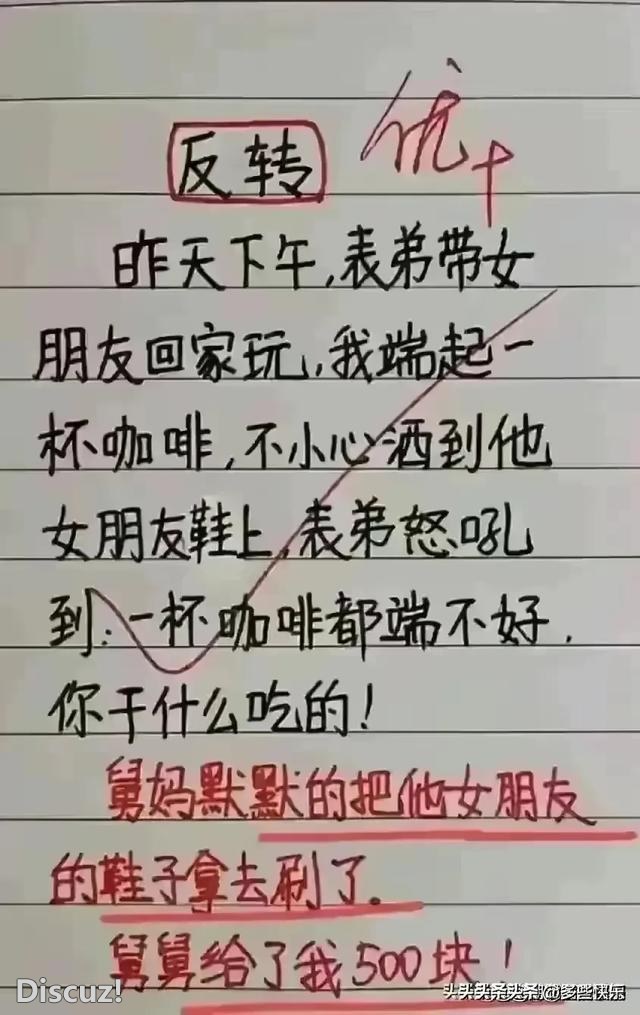 反转
优+
昨天下午,表弟带女
朋友回家玩,我端起一
杯咖啡,不小心洒到他
女朋友鞋上,表弟怒吼
到:一杯咖啡都端不好,
你干什么吃的!
舅妈默默的把他女朋友
的鞋子拿去刷了。
舅舅给了我500块!
Discuz!